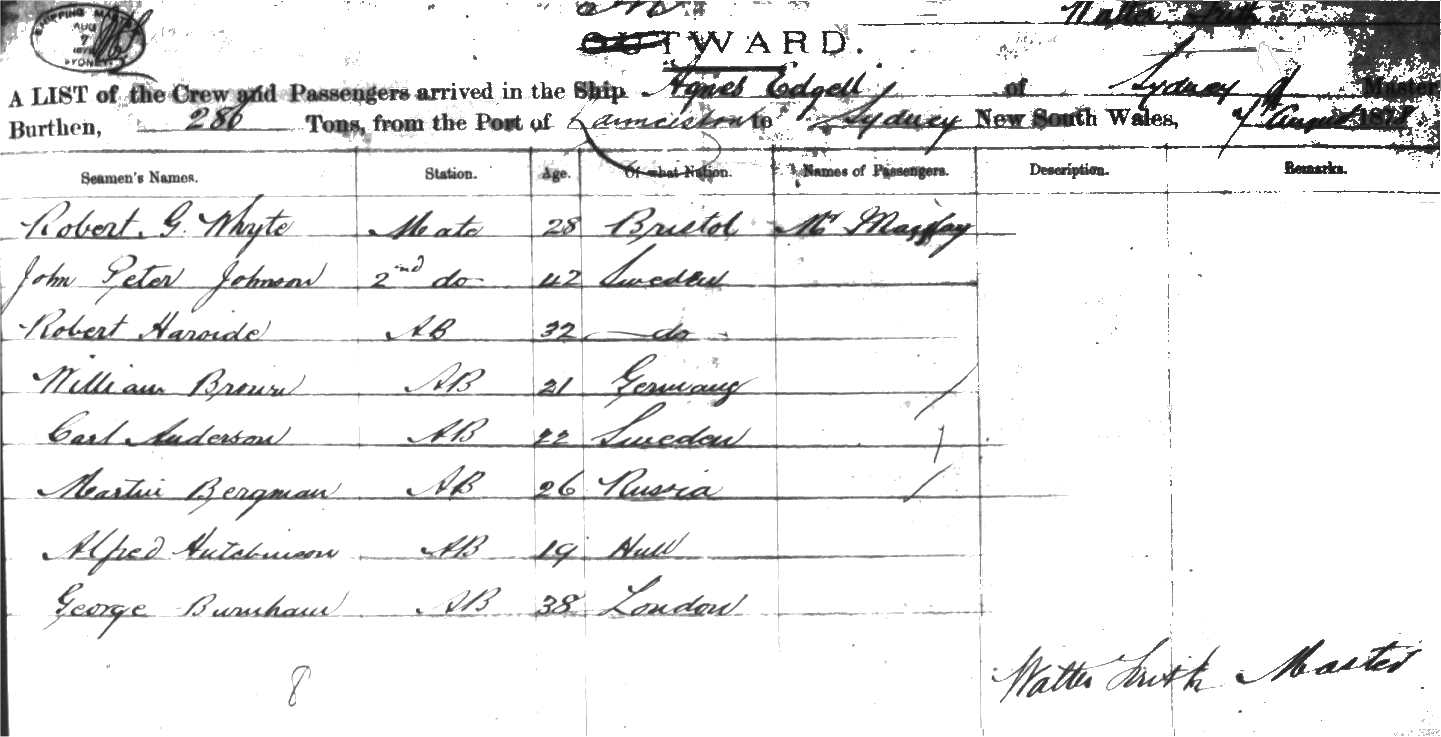 SHIPPING MA
AUG
7
SYDNEY
Walter Smith
OUTWARD.
A LIST of the Crew and Passengers arrived in the Ship Agnes Edgell of Sydney Master
Burthen, 286 Tons, from the Port of Launceston to Sydney New South Wales, 7 August 187
Seamen's Names. Station. Age. Of what Nation. Names of Passengers. Description. Remarks.
Robert. G. Whyte Mate 28 Bristol Mr
John Peter Johnson 2nd do 42 Sweden
Robert AB 32 do
William Brown AB 21 Germany
Carl Anderson AB 22 Sweden
Martin Bergman AB 26 Russia
Alfred Hutchinson AB 19 Hull
George Burnham AB 38 London
8
Walter Smith Master